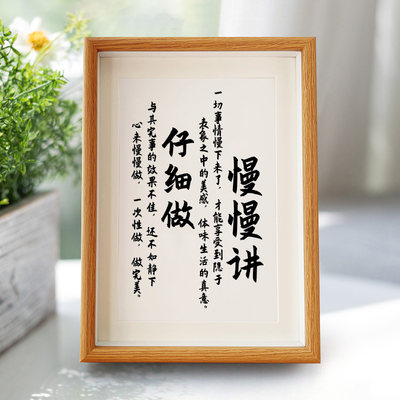 慢慢讲
一切事情慢下来了，才能享受到隐于
表象之中的美感，体味生活的真意。
仔细做
与其完事的效果不佳，还不如静下
心来慢慢做，一次性做，做完美。